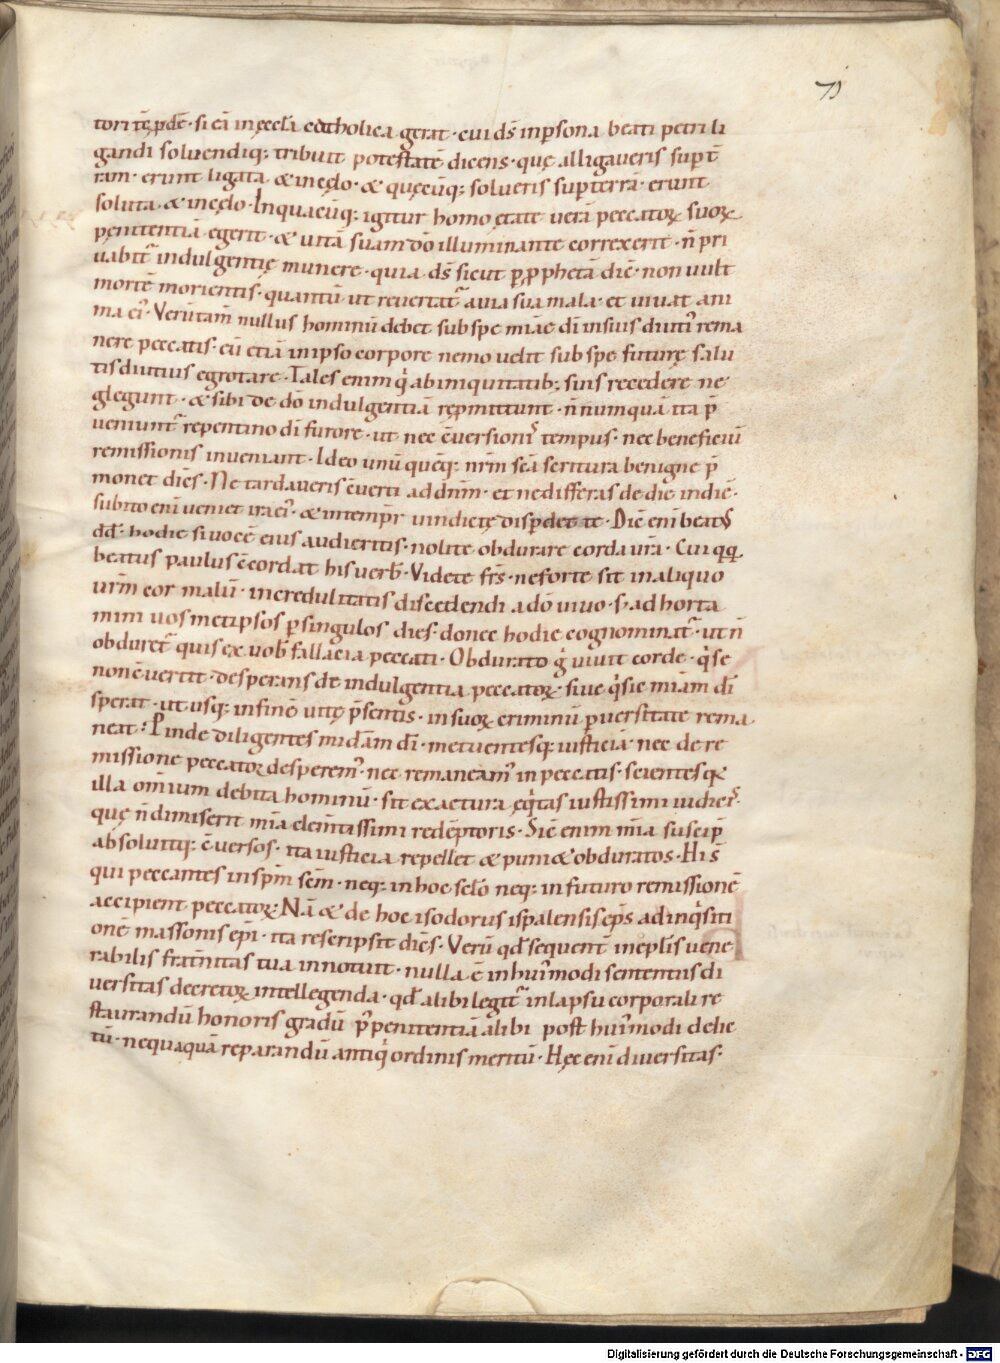 71
tori tę pdē · si eā in ęccłā catholica gerat · cui dš in psona beati petri li
gandi soluendiq; tribuit potestatē dicens · quę alligaueris sup t̄
ram · erunt ligata & in cęlo · & quęcūq; solueris sup terrā · erunt
soluta · & in cęlo · In quacūq; igitur homo ętate uerā peccatoꝝ suoꝝ
penitentiā egerit · & uitā suam dō illuminante correxerit · n̄ pri
uabit᷒ indulgentię munere · quia dš sicut p pphetā dič · non uult
mortē morientis · quantū ut reuertat᷒ a uia sua mala · et uiuat ani
ma ei᷒ · Verūtam̄ nullus hominū debet sub spe miæ dī in suis diuti᷒ rema
nere peccatis · cū etiā in ipso corpore nemo uelit sub spe futurę salu
tis diutius egrotare · Tales enim q̇ ab iniquitatib; suis recedere ne
glegunt · & sibi de dō indulgentiā repmittunt · n̄ numquā ita p̄
ueniunt᷒ repentino dī furore · ut nec c̄uersionis tempus · nec beneficiū
remissionis inueniant · Ideo unū quēq; nrm̄ scā scritura benigne p̄
monet diēs · Ne tardaueris c̄uerti ad dnm̄ · et ne differas de die in diē ·
subito enī ueniet ira ei᷒ · & in tempr̄ uindictę disperdet te · Dič enī beat᷒
dd̄ · hodie si uocē eius audieritis · nolite obdurare corda ur̄a · Cui qq̄
beatus paulus c̄cordat his uerb̄ · Videte fr̄s · ne forte sit in aliquo
urm̄ cor malū · incredulitatis discedendi a dō uiuo · s; adhorta
mini uos metipsos p singulos dies · donec hodie cognominat᷒ · ut n̄
obduret᷒ quis ex uob̄ fallacia peccati · Obdurato ġ uiuit corde · q̇ se
non c̄uertit · desperans de indulgentia peccatoꝝ · siue q̇ sic miām dī
sperat · ut usq; in finē uitę p̄sentis · in suoꝝ criminū puersitate rema
neat : Pinde diligentes mīdam dī · metuentesq; iusticiā · nec de re
missione peccatoꝝ desperem᷒ · nec remaneam᷒ in peccatis · scientes q̄
illa omīum debita hominū · sit exactura ęq̇tas iustissimi iudic᷒ ·
quę n̄ dimiserit mīa clem̄tissimi redēptoris · Sič enim mīa suscip̄
absoluitq; c̄uersos · ita iusticia repellet & puni& obduratos · Hi s̄
qui peccantes in spm̄ scm̄ · neq; in hoc sclō neq; in futuro remissionē
accipient peccatoꝝ · Nā & de hoc isodorus ispalensis eps̄ ad inq̇siti
onē massonis epī · ita rescripsit diēs · Verū qd̄ sequent̄ in eplīs uene
rabilis frat̄nitas tua innotuit · nulla ē in hui᷒modi sententiis di
uersitas decretoꝝ intellegenda · qd̄ alibi legit᷒ in lapsu corporali re
staurandū honoris gradū p̄ penitentiā alibi post hui᷒modi delic
tū · nequaquā reparandū antiq̇ ordinis meritū · Hęc enī diuersitas ·
Digitalisierung gefördert durch die Deutsche Forschungsgemeinschaft - DFG